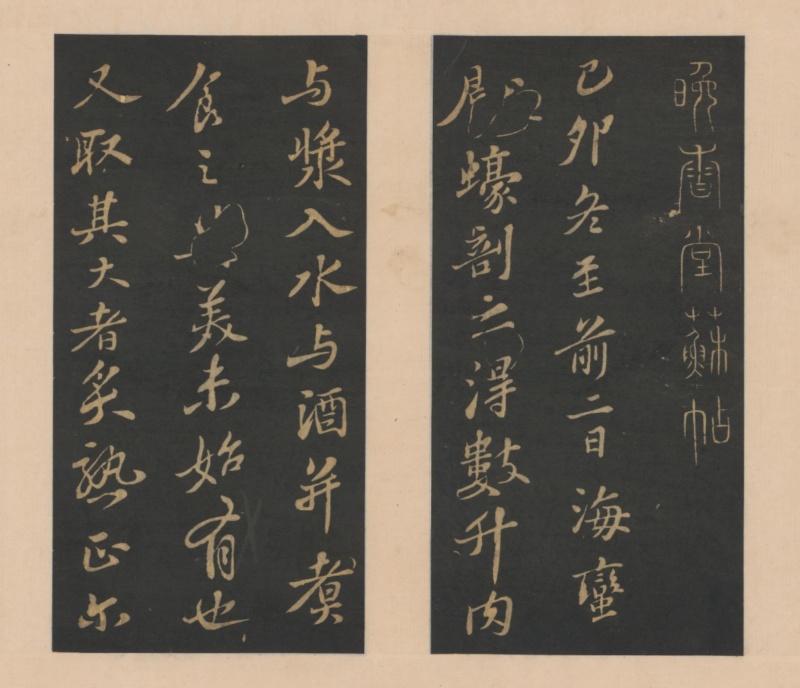 晚香堂蘇帖
己卯冬至前二日海蠻
蠔剖之得數升肉
与漿入水与酒并煑
食之甚美未始有也
又取其大者炙熟正尔